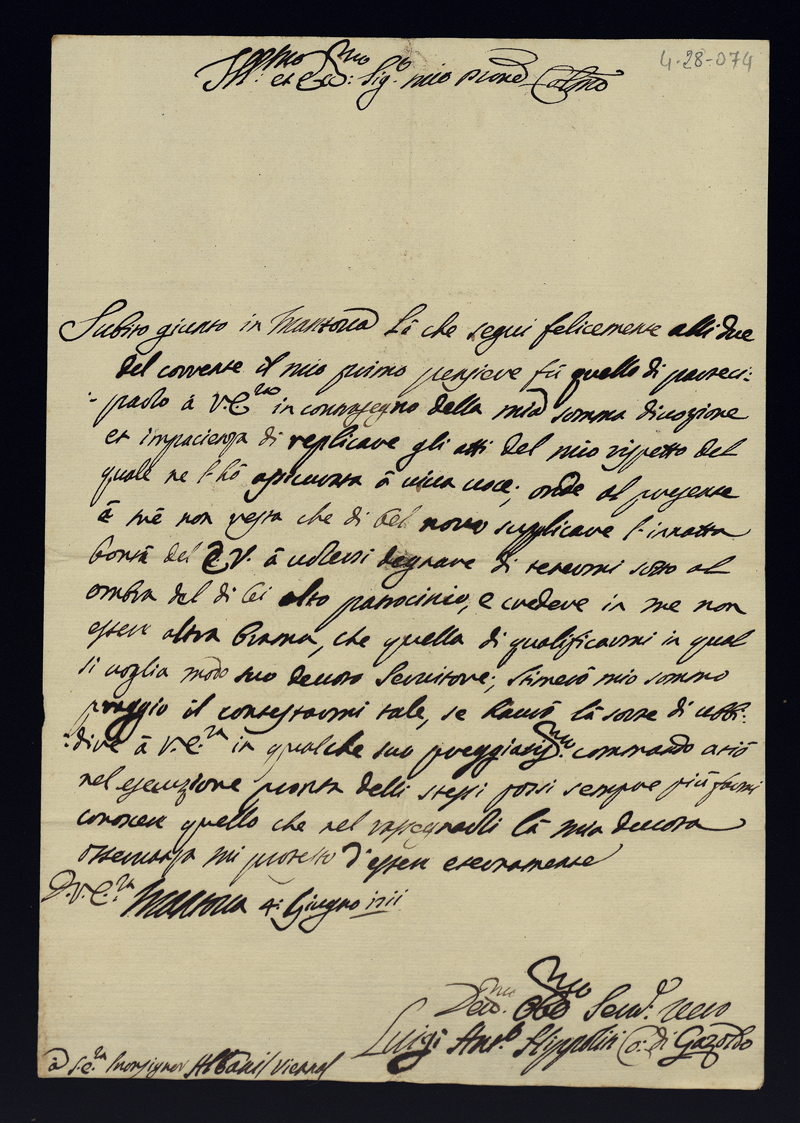 4-28-074
Ill.mo et Ecc.mo Sig.r mio Pron Colmo
Subito giunto in Mantova lá che seguí felicemente alli due
del corrente il mio primo pensiere fú quello di parteci:
:parlo á V.E.za in contrasegno della mia somma divozione
et impacienza di replicare gli atti del mio rispetto del
quale ne l'hó assicurata á viva voce; onde al presente
á mé non resta che di bel novo supplicare l'innatta
bontá del E.V. á volersi degnare di tenermi sotto al
ombra del di lei alto patrocinio, e credere in me non
essere altra brama, che quella di qualificarmi in qual
si voglia modo suo devoto Servitore; stimeró mio sommo
preggio il contestarmi tale, se haveró lá sorte di ubbi:
:dire á V.E.za in qualche suo preggiatis.mo commando acció
nel esecuzione pronta delli stessi possi sempre piú farmi
conoscere quello che nel rassegnarli lá mia devota
osservanza mi protesto d'essere eternamente
D.V.E.za
Mantova 4: Giugno 1711
Devo.mo Obb.mo Serv.re vero
Luigi Ant.o Hippoliti Co: di Gazoldo
á S.E.za Monsignor Albani Vienna